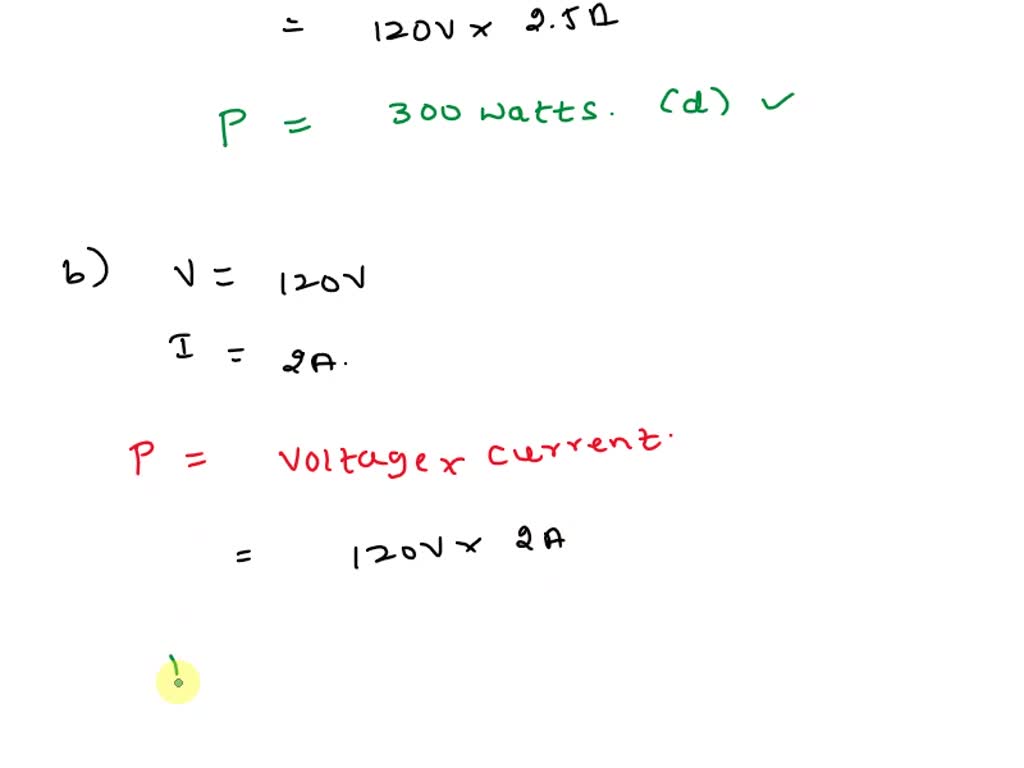 = 120V x 2.5Ω
P = 300 watts. (d) ✓
b) V = 120V
I = 2A.
P = Voltage x current.
= 120V x 2A